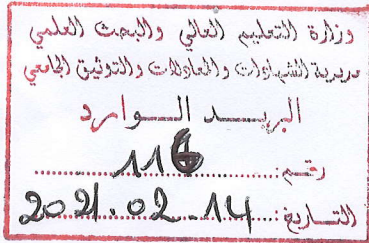 وزارة التعليم العالي والبحث العلمي
مديرية الشهادات والمعادلات والتوثيق الجامعي
البريــد الــوارد
رقم: 116
التاريخ: 2021.02.14